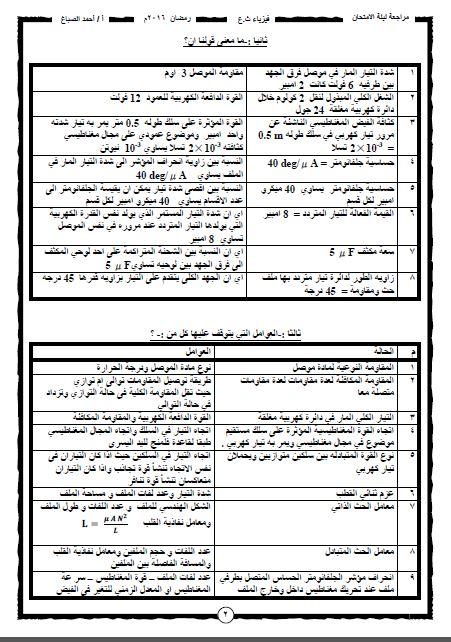 مراجعة ليلة الامتحان
فيزياء ث.ع
رمضان ٢٠١٦م
أ / أحمد الصباغ
ثانيا :- ما معنى قولنا ان؟
١ شدة التيار المار في موصل فرق الجهد بين طرفيه 6 فولت كانت 2 امبير
مقاومة الموصل 3 اوم
٢ الشغل الكلي المبذول لنقل 2 كولوم خلال دائرة كهربية مغلقة 24 جول
القوة الدافعة الكهربية للعمود 12 فولت
٣ كثافة الفيض المغناطيسي الناشئة عن مرور تيار كهربي في سلك طوله 0.5 m = 2×10⁻³ تسلا
القوة المؤثرة على سلك طوله 0.5 متر يمر به تيار شدته واحد امبير وموضوع عمودي على مجال مغناطيسي كثافته 2×10⁻³ تسلا يساوي 10⁻³ نيوتن
٤ حساسية جلفانومتر = 40 deg/μA
النسبة بين زاوية انحراف المؤشر الى شدة التيار المار في الملف يساوي 40 deg/μA
٥ حساسية جلفانومتر يساوي 40 ميكرو امبير لكل قسم
النسبة بين اقصى شدة تيار يمكن ان يقيسة الجلفانومتر الى عدد الاقسام يساوي 40 ميكرو امبير لكل قسم
٦ القيمة الفعالة للتيار المتردد = 8 امبير
اي ان شدة التيار المستمر الذي يولد نفس القدرة الكهربية التي يولدها التيار المتردد عند مروره في نفس الموصل تساوي 8 امبير
٧ سعة مكثف 5 μF
اي ان النسبة بين الشحنة المتراكمة على احد لوحي المكثف الى فرق الجهد بين لوحيه تساوي 5 μF
٨ زاويه الطور لدائرة تيار متردد بها ملف حث ومقاومة = 45 درجة
اي ان الجهد الكلي يتقدم على التيار بزاويه قدرها 45 درجه
ثالثا :- العوامل التي يتوقف عليها كل من :- ؟
م الحالة العوامل
١ المقاومة النوعية لمادة موصل
نوع مادة الموصل ودرجه الحرارة
٢ المقاومة المكافئة لعدة مقاومات لعدة مقاومات متصلة معا
طريقة توصيل المقاومات توالى ام توازي حيث تقل المقاومة الكلية في حالة التوازي وتزداد في حالة التوالي
٣ التيار الكلي المار في دائرة كهربية مغلقة
القوة الدافعة الكهربية والمقاومة المكافئة
٤ اتجاه القوة المغناطيسية المؤثرة على سلك مستقيم موضوع في مجال مغناطيسي ويمر به تيار كهربي .
اتجاه التيار في السلك واتجاه المجال المغناطيسي طبقا لقاعدة فلمنج لليد اليسري
٥ نوع القوة المتبادله بين سلكين متوازيين ويحملان تيار كهربي
اتجاه التيار في السلكين حيث اذا كان التياران فى نفس الاتجاه تنشأ قوة تجاذب واذا كان التياران متعاكسان تنشأ قوة تنافر
٦ عزم ثنائي القطب
شدة التيار وعدد لفات الملف و مساحة الملف
٧ معامل الحث الذاتي
الشكل الهندسي للملف و عدد اللفات و طول الملف ومعامل نفاذية القلب L = μAN²/L
٨ معامل الحث المتبادل
عدد اللفات و حجم الملفين ومعامل نفاذية القلب والمسافة الفاصلة بين الملفين
٩ انحراف مؤشر الجلفانومتر الحساس المتصل بطرفي ملف عند تحريك مغناطيس داخل وخارج الملف
عدد لفات الملف – قوة المغناطيس – سرعة المغناطيس او المعدل الزمني للتغير في الفيض
٢